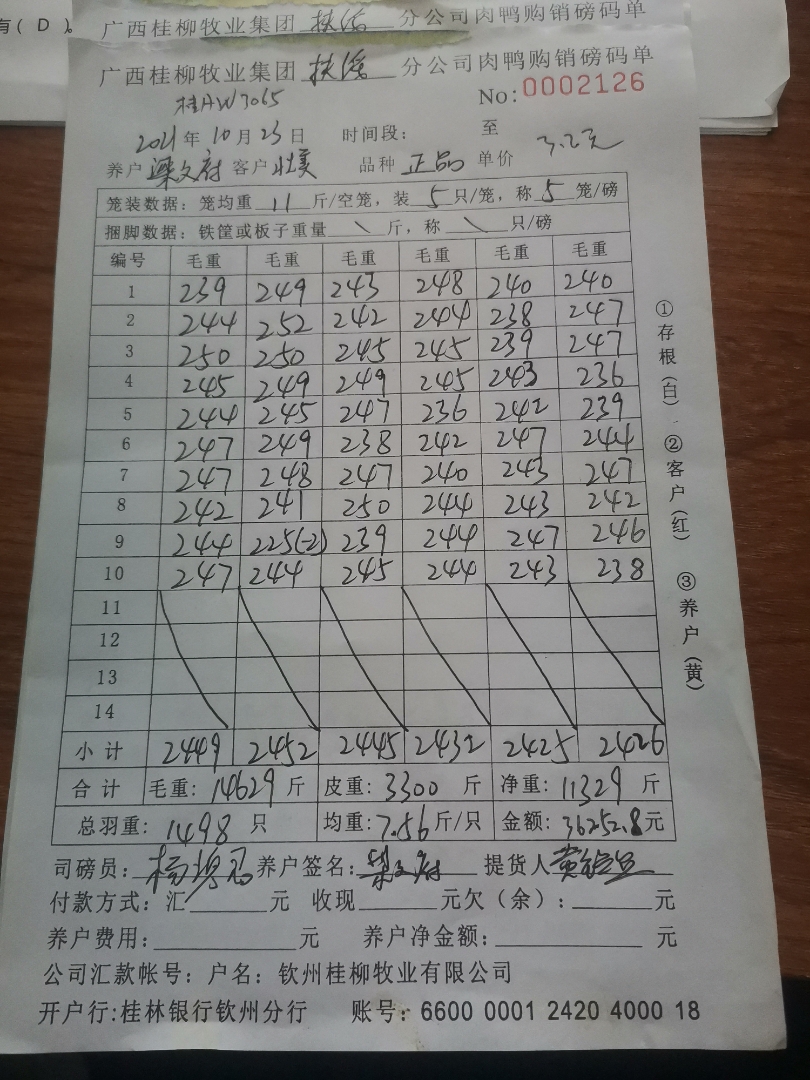 有( D )。
广西桂柳牧业集团 扶绥 分公司肉鸭购销磅码单
广西桂柳牧业集团 扶绥 分公司肉鸭购销磅码单
桂AW3065 No:0002126
2021年10月23日 时间段: 至
养户 梁文府 客户 壮美 品种 正品 单价 3.2元
笼装数据: 笼均重 11 斤/空笼, 装 5 只/笼, 称 5 笼/磅
捆脚数据: 铁筐或板子重量 \ 斤, 称 \ 只/磅
编号 毛重 毛重 毛重 毛重 毛重 毛重
1 239 249 243 248 240 240
2 244 252 242 244 238 247
3 250 250 245 245 239 247
4 245 249 249 245 243 236
5 244 245 247 236 242 239
6 247 249 238 242 247 244
7 247 248 247 240 243 247
8 242 241 250 244 243 242
9 244 225(-2) 239 244 247 246
10 247 244 245 244 243 238
11
12
13
14
小计 2449 2452 2445 2432 2425 2426
合计 毛重: 14629 斤 皮重: 3300 斤 净重: 11329 斤
总羽重: 1498 只 均重: 7.56 斤/只 金额: 36252.8元
司磅员: 养户签名: 梁文府 提货人
付款方式: 汇 元 收现 元欠(余): 元
养户费用: 元 养户净金额: 元
公司汇款帐号: 户名: 钦州桂柳牧业有限公司
开户行:桂林银行钦州分行 账号: 6600 0001 2420 4000 18
①存根(白) ②客户(红) ③养户(黄)